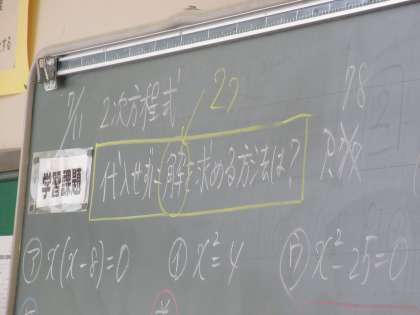 7/11 2次方程式 2つ 78
学習課題 代入せずに解を求める方法は?
㋐ x(x-8)=0 ㋑ x²=4 ㋒ x²-25=0